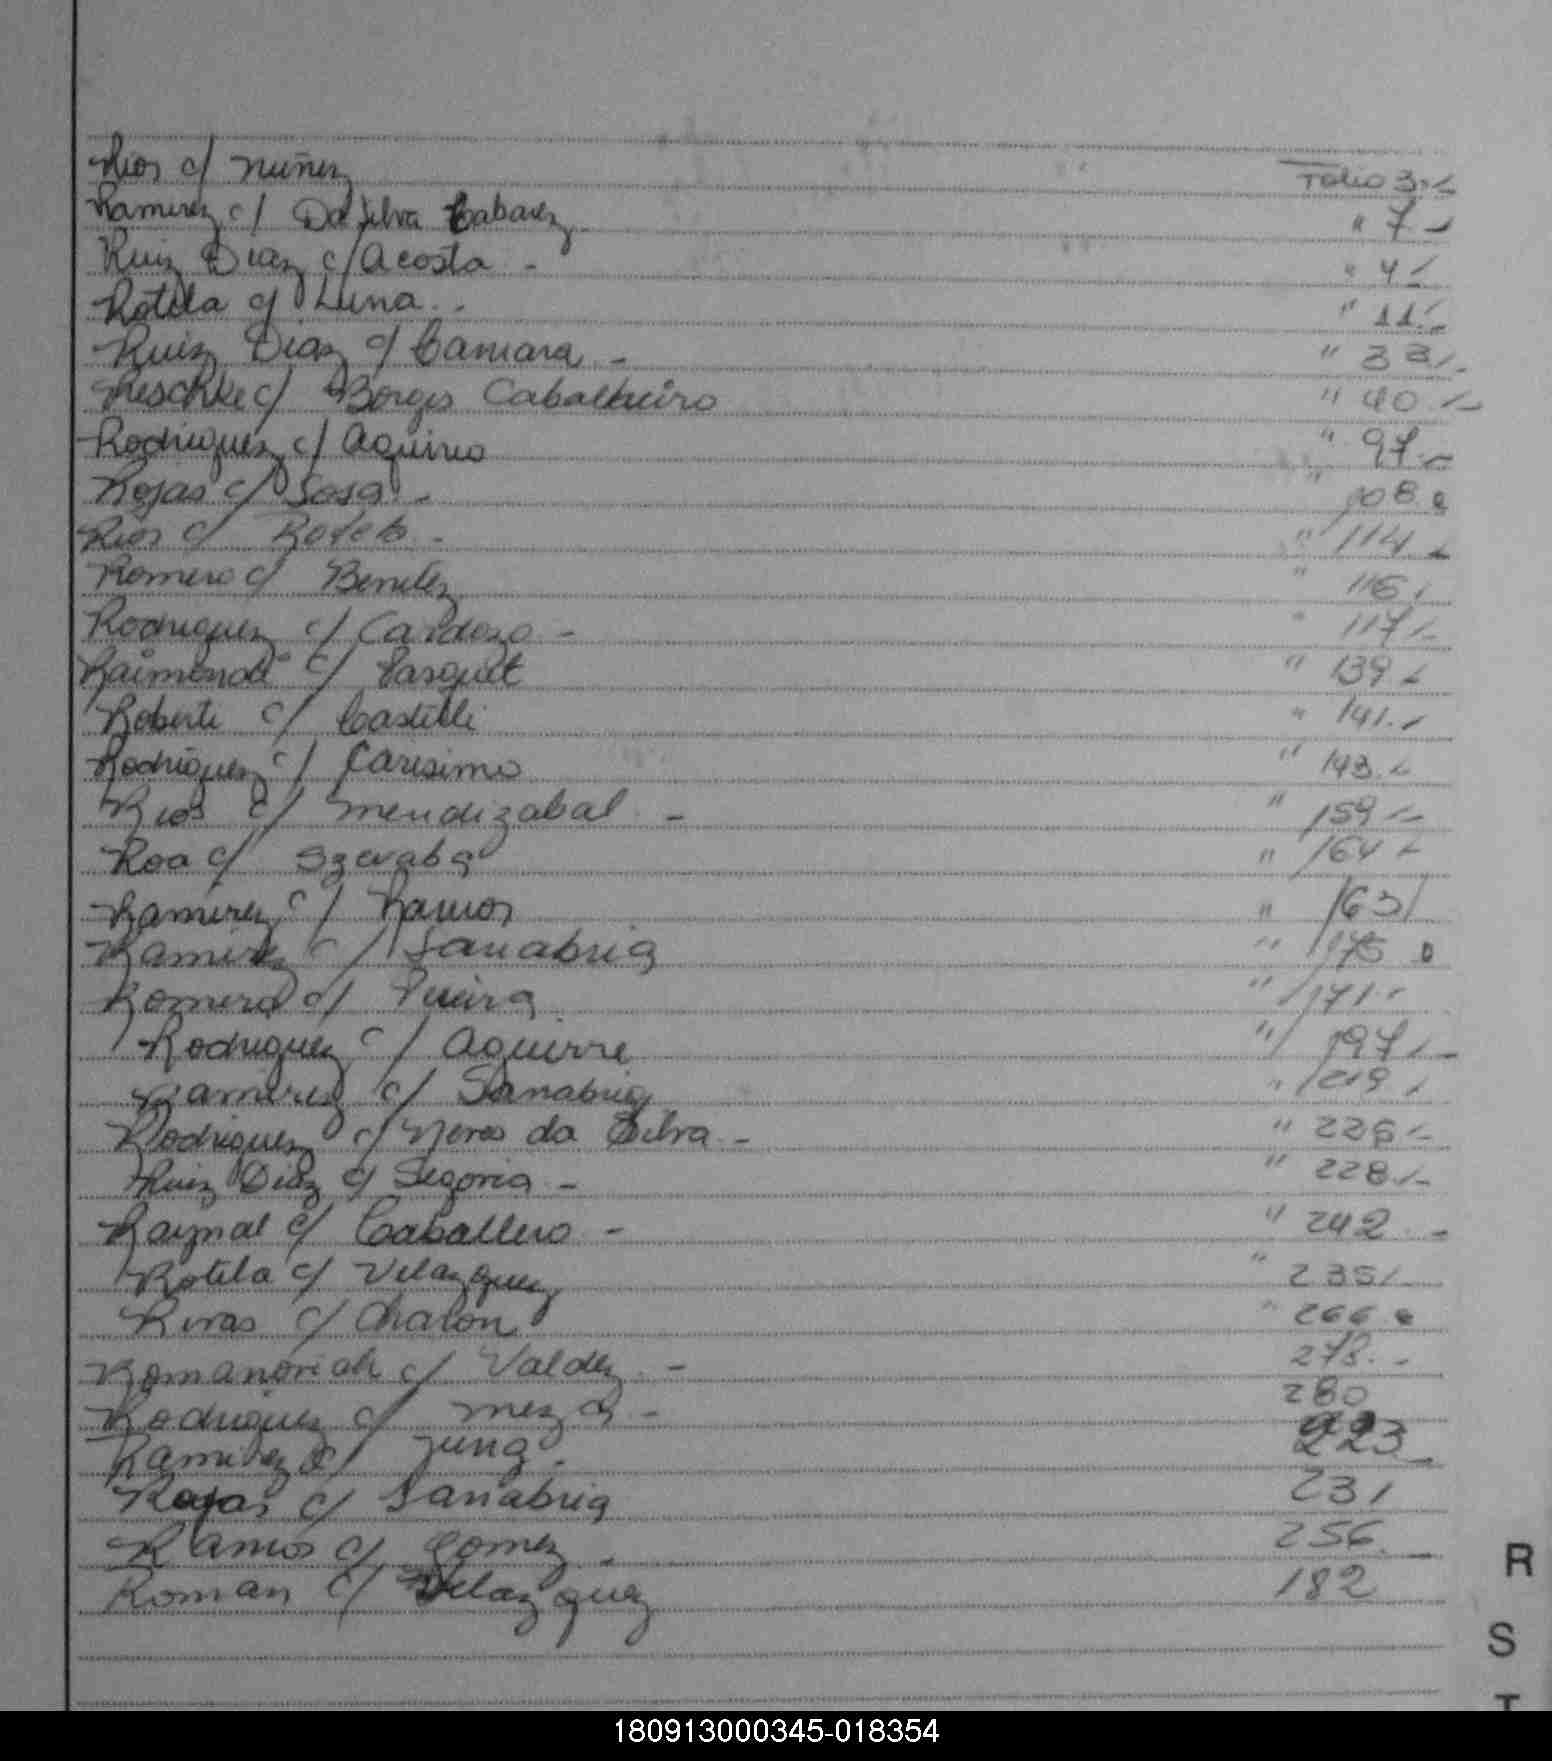 Rios c/ Nuñez Folio 3.-
Ramirez c/ Da Silva Cabarez " 7.-
Ruiz Diaz c/ Acosta - " 4.-
Rotela c/ Luna.- " 11.-
Ruiz Diaz c/ Camara - " 33/.
Reschke c/ Borges Cabalheiro " 40.-
Rodriguez c/ Aquino " 97.-
Rojas c/ Sosa - " 108.
Rios c/ - " 114.-
Romero c/ Benitez " 116.
Rodriguez c/ Cardozo - " 117.-
Raimondi c/ Pasquet " 139.-
Roberti c/ Castelli " 141.-
Rodriguez c/ Carisimo " 143.-
Rios c/ Mendizabal - " 159.-
Roa c/ " 164.-
Ramirez c/ Ramos " 163/
Ramirez c/ Sanabria " 175
Romero c/ Pereira " 171.-
Rodriguez c/ Aguirre " 197.-
Ramirez c/ Sanabria " 219.
Rodriguez c/ Neves da Silva - " 226.-
Ruiz Diaz c/ Segovia - " 228.-
Raynal c/ Caballero - " 242 -
Rotela c/ Velazquez " 235/.
Rivas c/ Chalon " 266.
Romanovich c/ Valdez - 278.-
Rodriguez c/ Meza - 280
Ramirez c/ Jung. 223
Rojas c/ Sanabria 231
Ramos c/ Gomez - 256.-
Roman c/ Velazquez 182
R
S
T
180913000345-018354